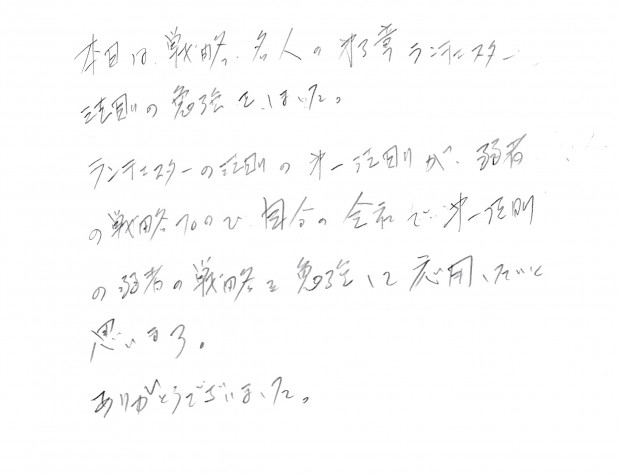 本日は、戦略、名人の第3章ランチェスター
法則の勉強をしました。
ランチェスターの法則の第一法則が、弱者
の戦略なので自分の会社で第一法則
の弱者の戦略を勉強して応用したいと
思います。
ありがとうございました。